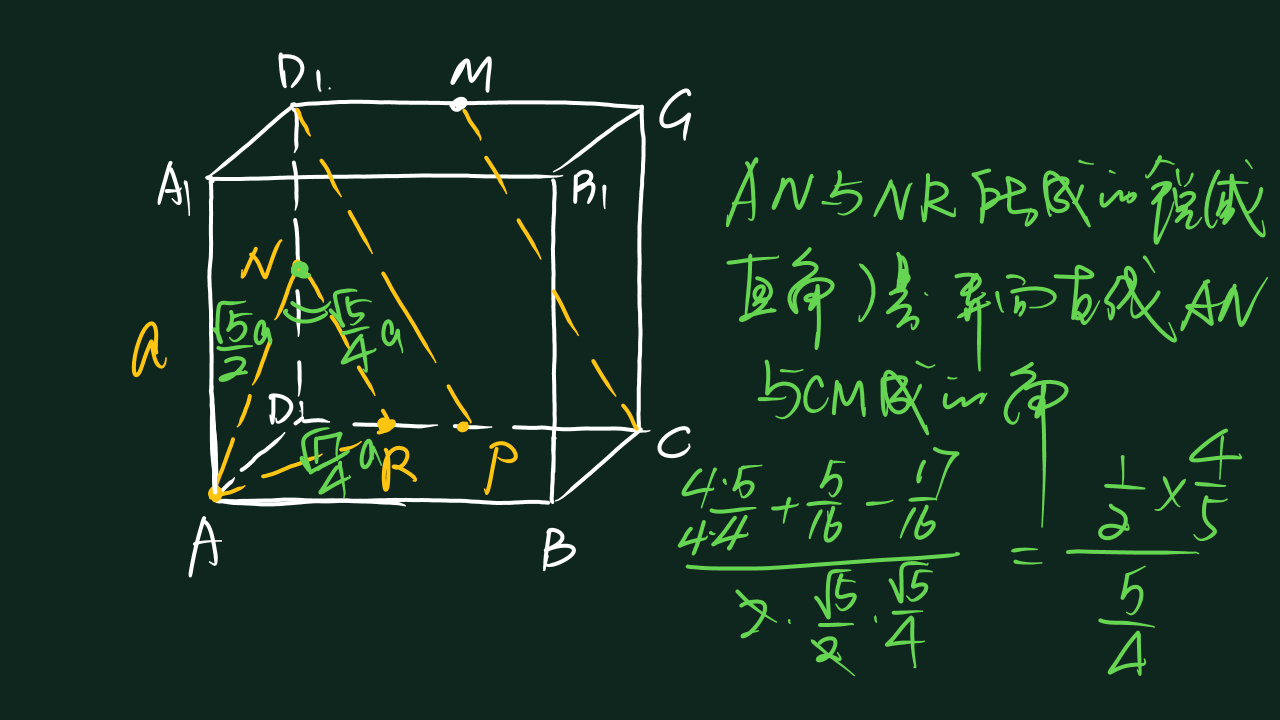 D₁ M
C₁
A₁ B₁
N
a √5/2 a √5/4 a
D
√17/4 a R P C
A B
AN与NR所成的锐(或
直角)是异面直线AN
与CM成的角
(4·5/4·4 + 5/16 − 17/16) / (2 · √5/2 · √5/4) = (1/2 × 4/5) / (5/4)